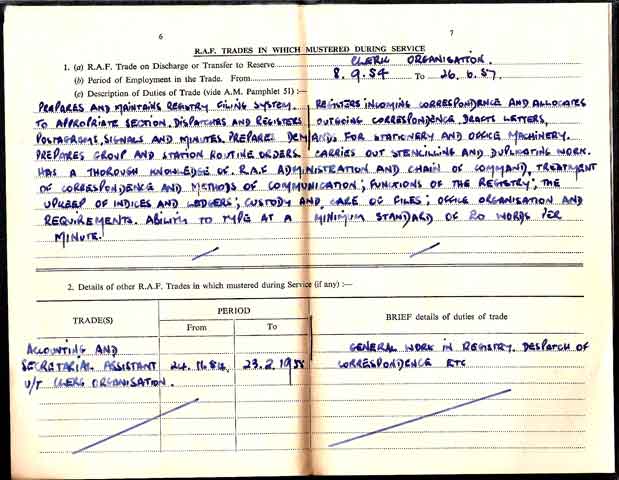 6
7
R.A.F. TRADES IN WHICH MUSTERED DURING SERVICE
1. (a) R.A.F. Trade on Discharge or Transfer to Reserve CLERK ORGANISATION.
(b) Period of Employment in the Trade. From 8.9.54 To 26.6.57.
(c) Description of Duties of Trade (vide A.M. Pamphlet 51) :—
PREPARES AND MAINTAINS REGISTRY FILING SYSTEM. REGISTERS INCOMING CORRESPONDENCE AND ALLOCATES
TO APPROPRIATE SECTION. DISPATCHES AND REGISTERS OUTGOING CORRESPONDENCE. DRAFTS LETTERS,
POSTAGRAMS, SIGNALS AND MINUTES. PREPARES DEMANDS FOR STATIONERY AND OFFICE MACHINERY.
PREPARES GROUP AND STATION ROUTINE ORDERS. CARRIES OUT STENCILLING AND DUPLICATING WORK.
HAS A THOROUGH KNOWLEDGE OF R.A.F ADMINISTRATION AND CHAIN OF COMMAND, TREATMENT
OF CORRESPONDENCE AND METHODS OF COMMUNICATION; FUNCTIONS OF THE REGISTRY; THE
UPKEEP OF INDICES AND LEDGERS; CUSTODY AND CARE OF FILES; OFFICE ORGANISATION AND
REQUIREMENTS. ABILITY TO TYPE AT A MINIMUM STANDARD OF 20 WORDS PER
MINUTE.
2. Details of other R.A.F. Trades in which mustered during Service (if any) :—
TRADE(S)
PERIOD
From
To
BRIEF details of duties of trade
ACCOUNTING AND
SECRETARIAL ASSISTANT
U/T CLERK ORGANISATION.
23.2.19
GENERAL WORK IN REGISTRY. DESPATCH OF
CORRESPONDENCE ETC